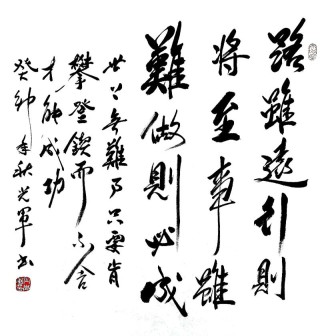 路雖遠行則
將至事雖
難做則必成
世上無難事只要肯
攀登鍥而不舍
才能成功
癸卯年秋光軍書